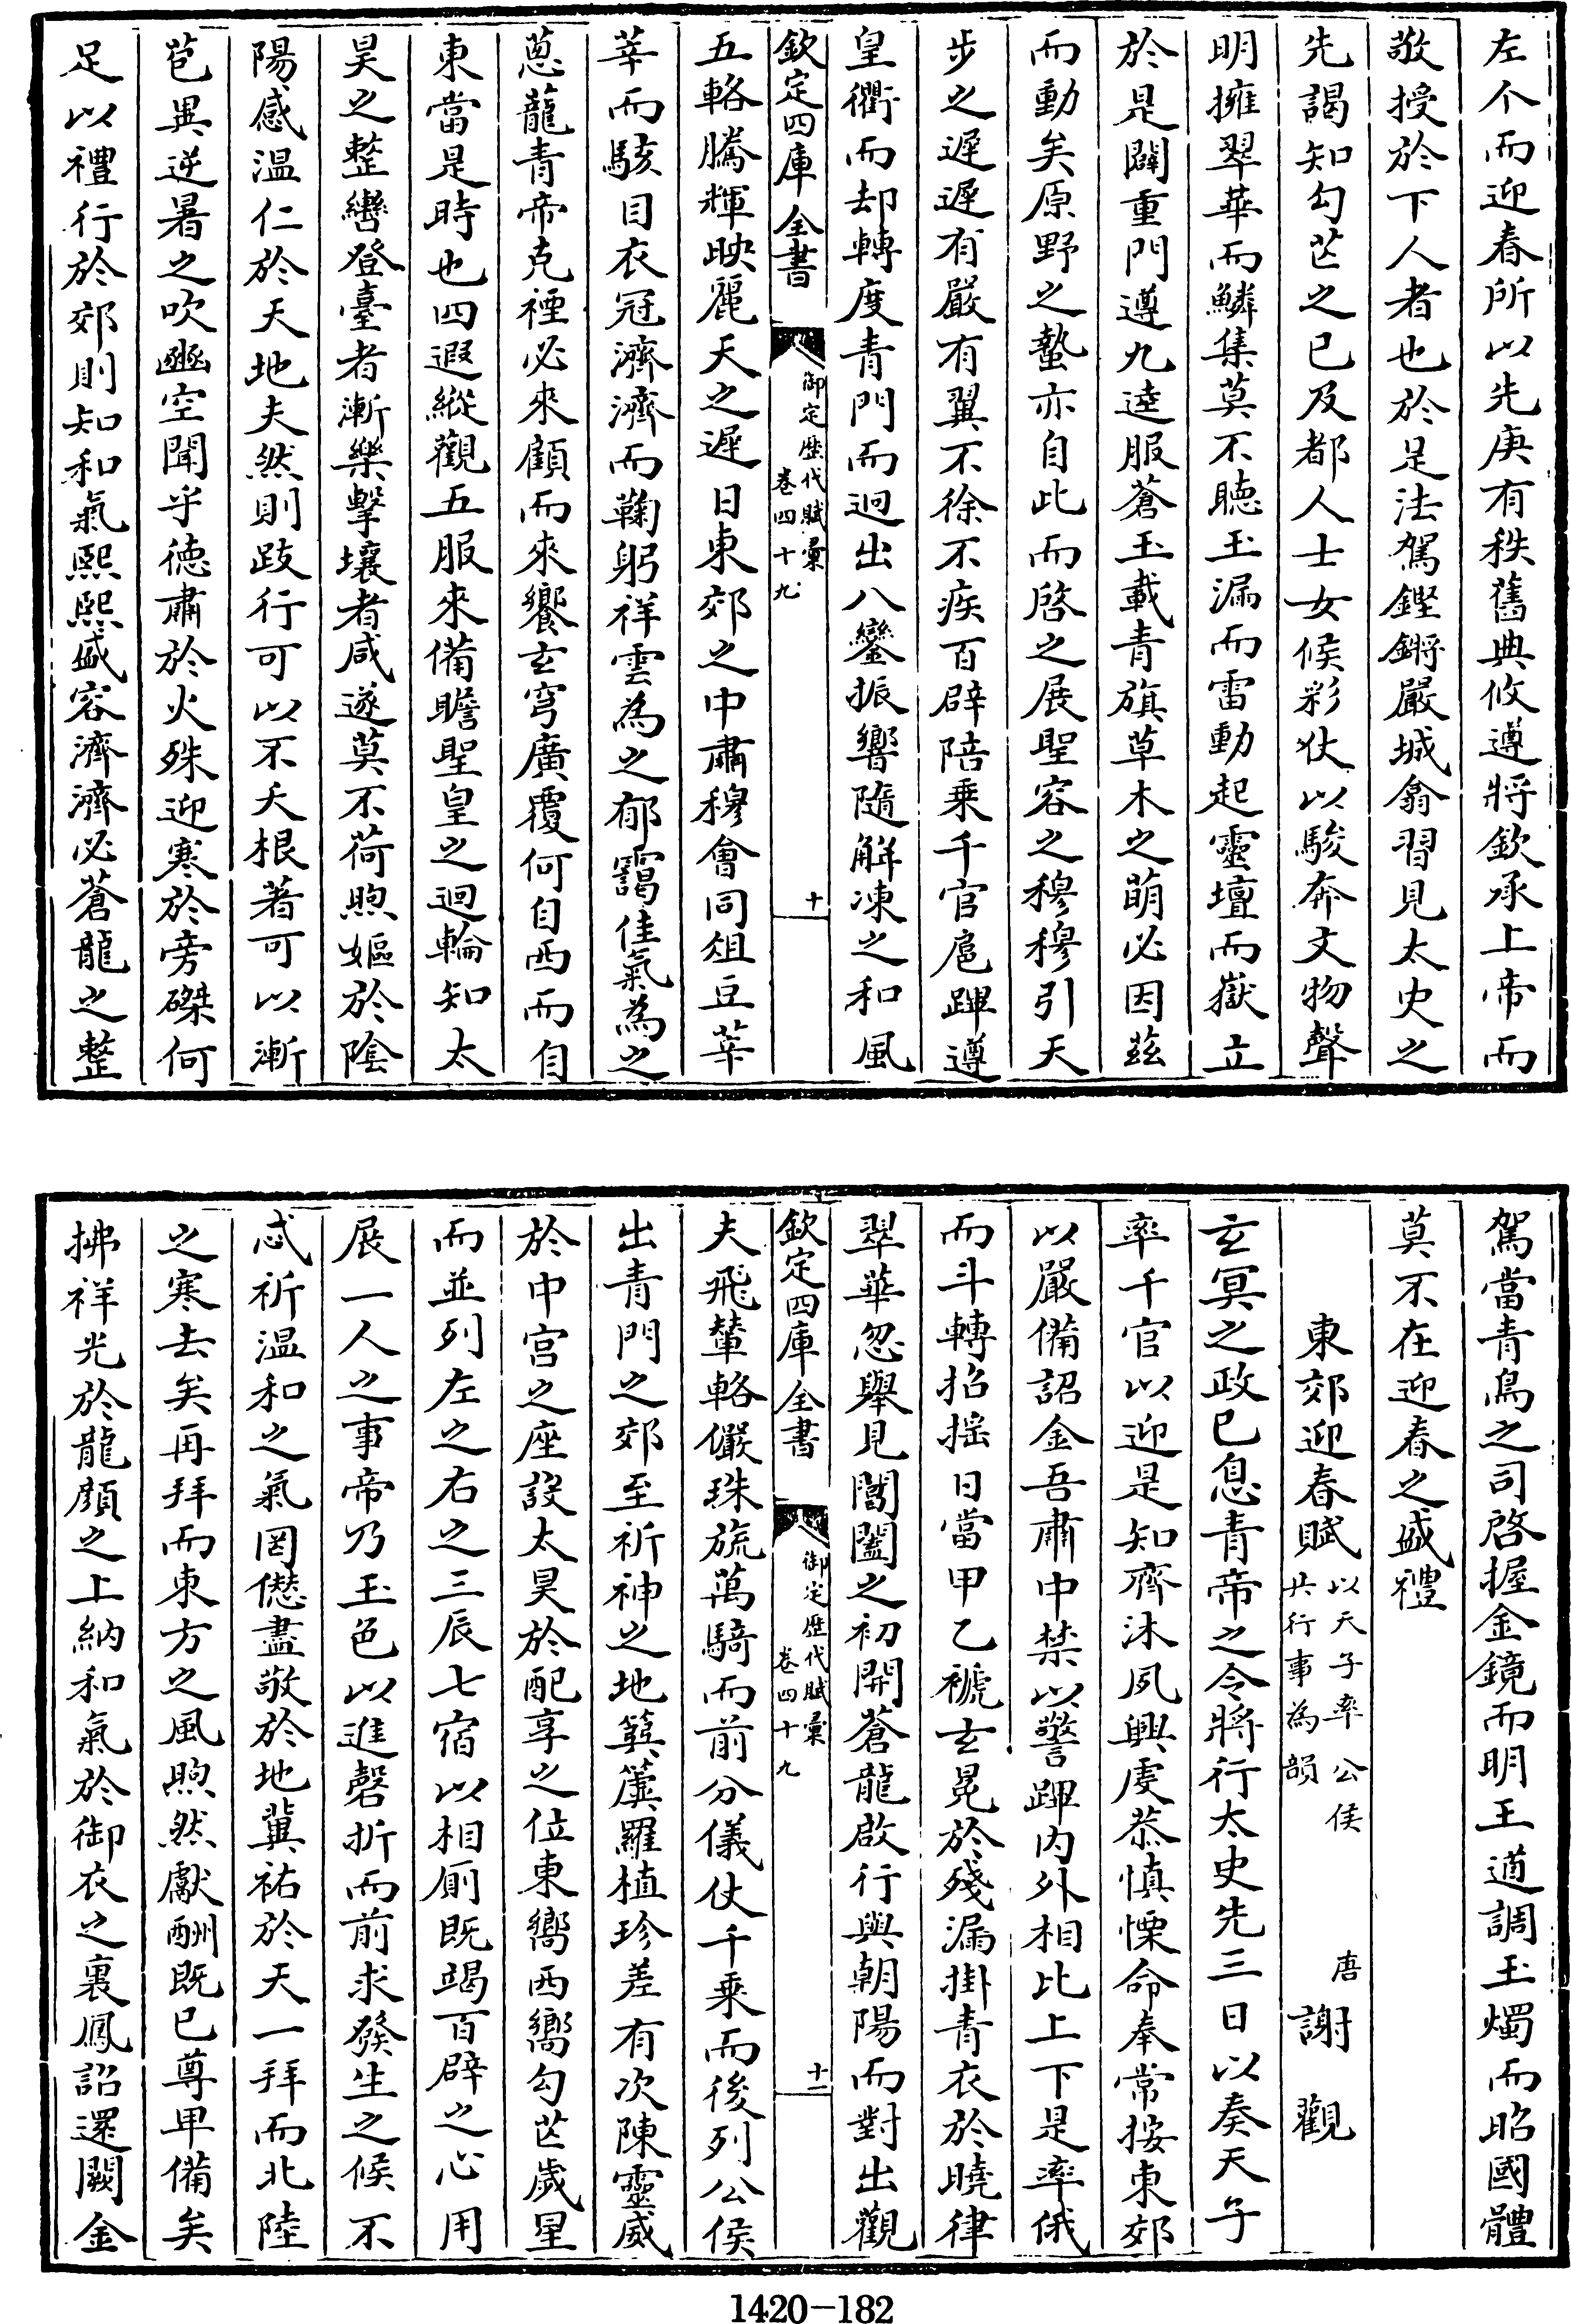 左个而迎春所以先庚有秩舊典攸遵將欽承上帝而
敬授於下人者也於是法駕鏗鏘嚴城翕習見太史之
先謁知勾芒之已及都人士女候彩仗以駿奔文物聲
明擁翠華而鱗集莫不聽玉漏而雷動起靈壇而嶽立
於是闢重門遵九逵服蒼玉載青旗草木之萌必因茲
而動矣原野之蟄亦自此而啓之展聖容之穆穆引天
步之遲遲有嚴有翼不徐不疾百辟陪乗千官扈蹕遵
皇衢而却轉度青門而迥出八鑾振響隨解凍之和風
欽定四庫全書
御定歴代賦彙
卷四十九
十
五輅騰輝映麗天之遲日東郊之中肅穆會同俎豆莘
莘而駭目衣冠濟濟而鞠躬祥雲為之郁靄佳氣為之
蔥蘢青帝克禋必來顧而來饗玄穹廣覆何自西而自
東當是時也四遐縱觀五服來備瞻聖皇之迴輪知太
昊之整轡登臺者漸樂擊壤者咸遂莫不荷煦嫗於隂
陽感温仁於天地夫然則跂行可以不夭根著可以漸
苞異逆暑之吹豳空聞乎德肅於火殊迎寒於旁磔何
足以禮行於郊則知和氣熙熙盛容濟濟必蒼龍之整
駕當青鳥之司啓握金鏡而明王道調玉燭而昭國體
莫不在迎春之盛禮
東郊迎春賦 以天子率公侯共行事為韻 唐 謝觀
玄冥之政已息青帝之令將行太史先三日以奏天子
率千官以迎是知齊沐夙興虔恭慎慄命奉常按東郊
以嚴備詔金吾肅中禁以警蹕内外相比上下是率俄
而斗轉招揺日當甲乙褫玄冕於殘漏掛青衣於曉律
翠華忽舉見閶闔之初開蒼龍啟行與朝陽而對出觀
欽定四庫全書
御定歴代賦彙
卷四十九
十一
夫飛輦輅儼珠旒萬騎而前分儀仗千乗而後列公侯
出青門之郊至祈神之地簨簴羅植珍差有次陳靈威
於中宫之座設太昊於配享之位東嚮西嚮勾芒歲星
而並列左之右之三辰七宿以相廁既竭百辟之心用
展一人之事帝乃玉色以進磬折而前求發生之候不
忒祈温和之氣罔僁盡敬於地冀祐於天一拜而北陸
之寒去矣再拜而東方之風煦然獻酬既已尊卑備矣
拂祥光於龍顔之上納和氣於御衣之裏鳳詔還闕金
1420-182